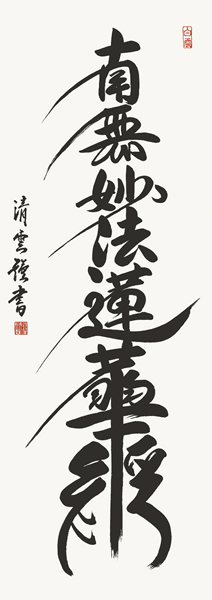 南無妙法蓮華經
清雲 書